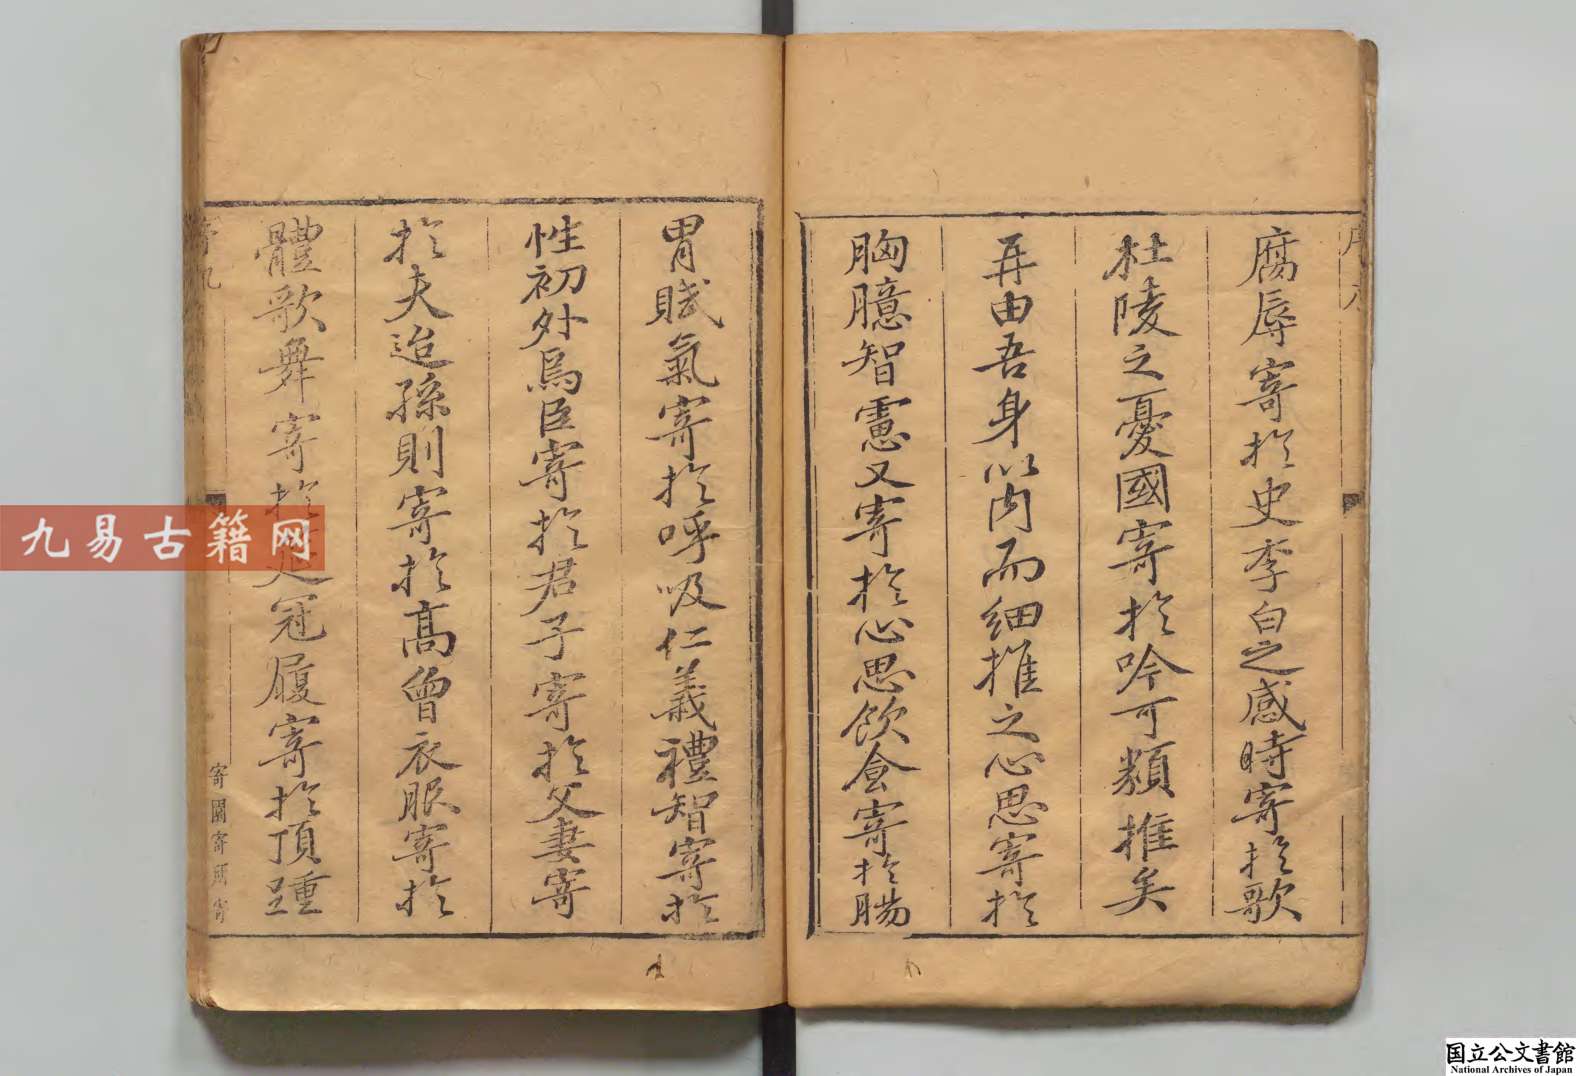 腐辱寄於史李白之感時寄於歌
杜陵之憂國寄於吟可類推矣
再由吾身以内而細推之心思寄於
胸臆智慮又寄於心思飲食寄於腸
胃賦氣寄於呼吸仁義禮智寄於
性初外焉臣寄於君子寄於父妻寄
於夫迨孫則寄於高曾衣服寄於
體歌舞寄於冠履寄於頂踵
寄園寄所寄
九易古籍网
国立公文書館
National Archives of Japan